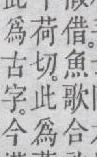 借。魚歌合
荷切。此爲
爲古字。今